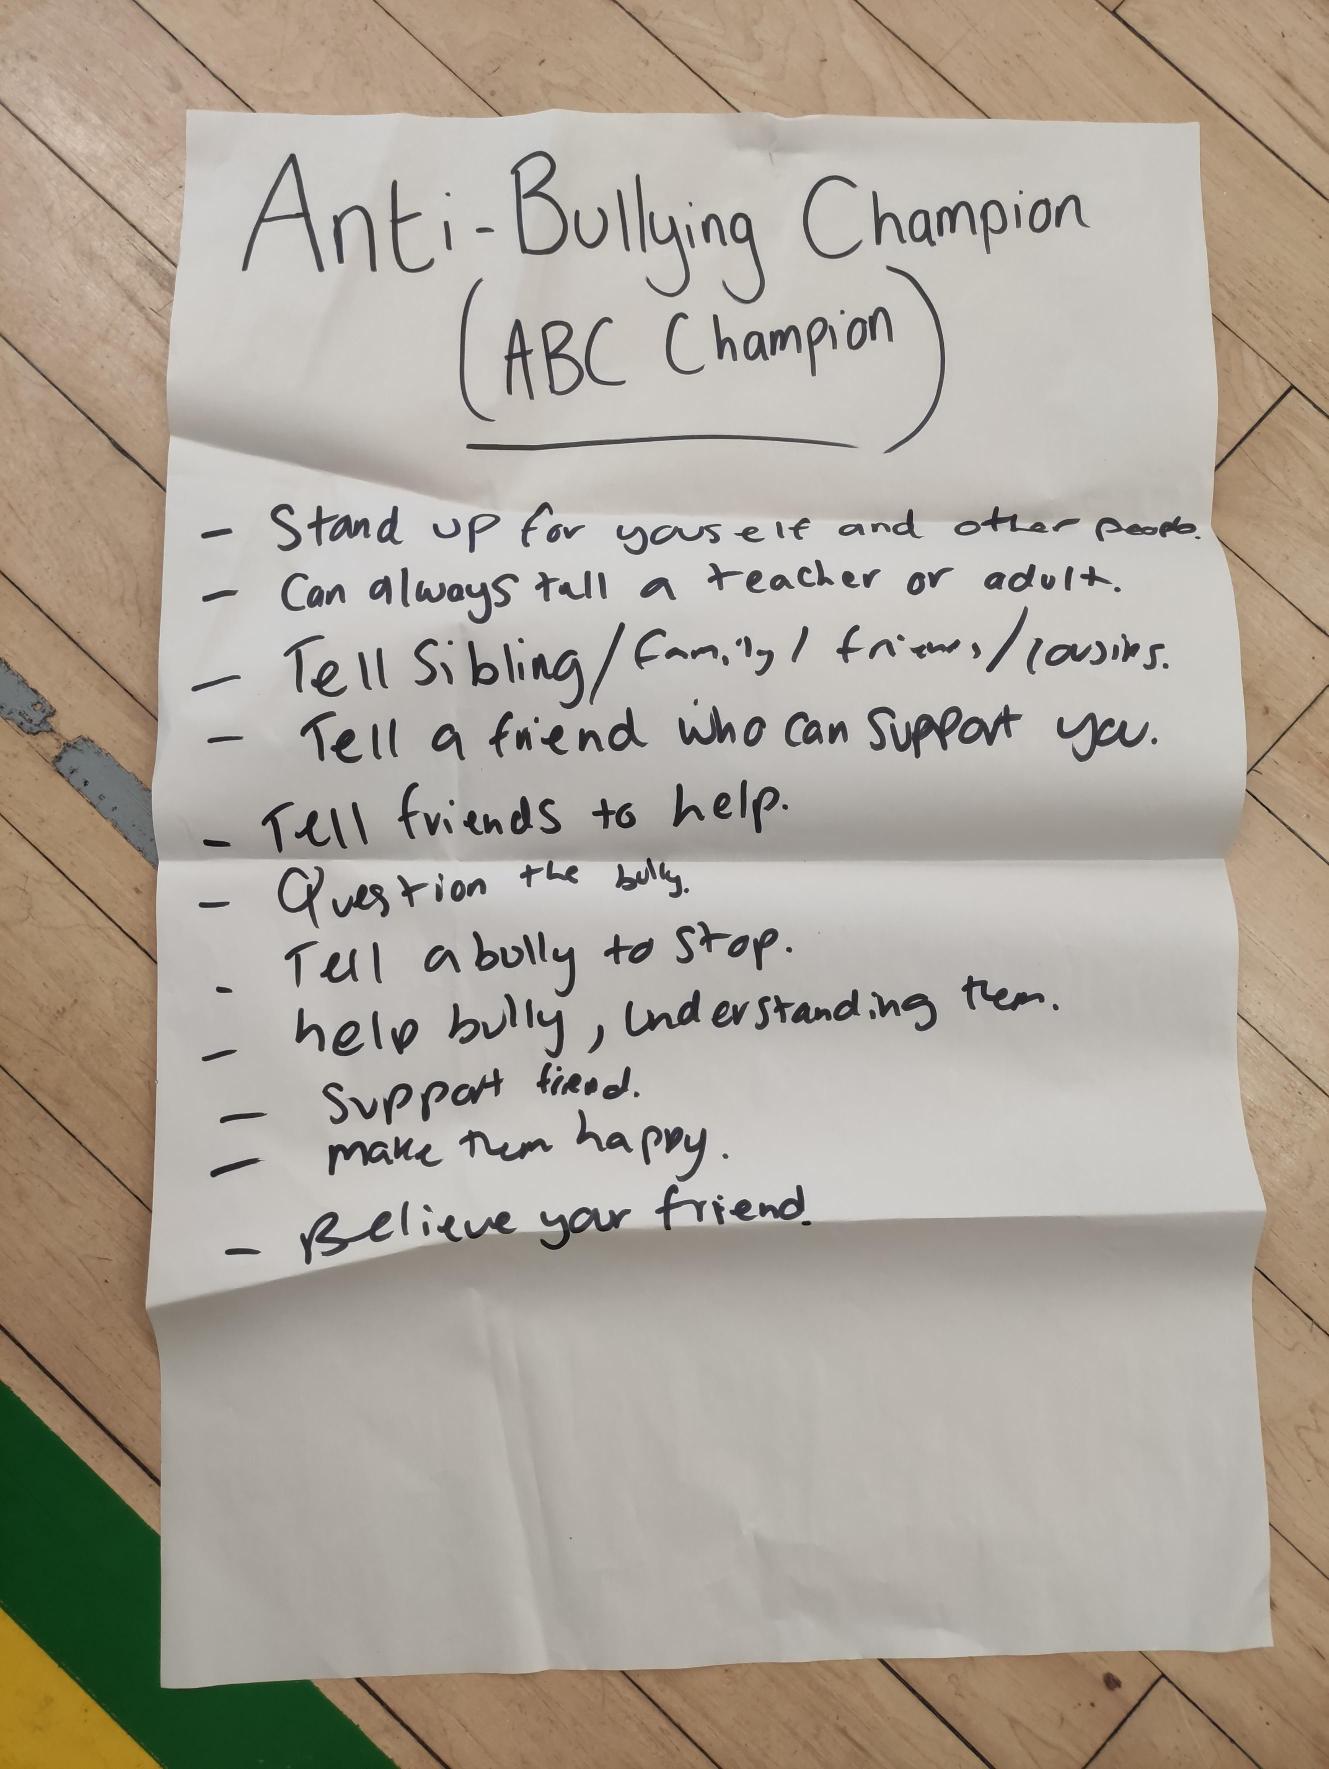 Anti-Bullying Champion
(ABC Champion)
- Stand up for youself and other people.
- Can always tall a teacher or adult.
- Tell Sibling/family/friends/cousins.
- Tell a friend who can support you.
- Tell friends to help.
- Question the bully.
- Tell a bully to stop.
- help bully, understanding them.
- Support friend.
- make them happy.
- Believe your friend.